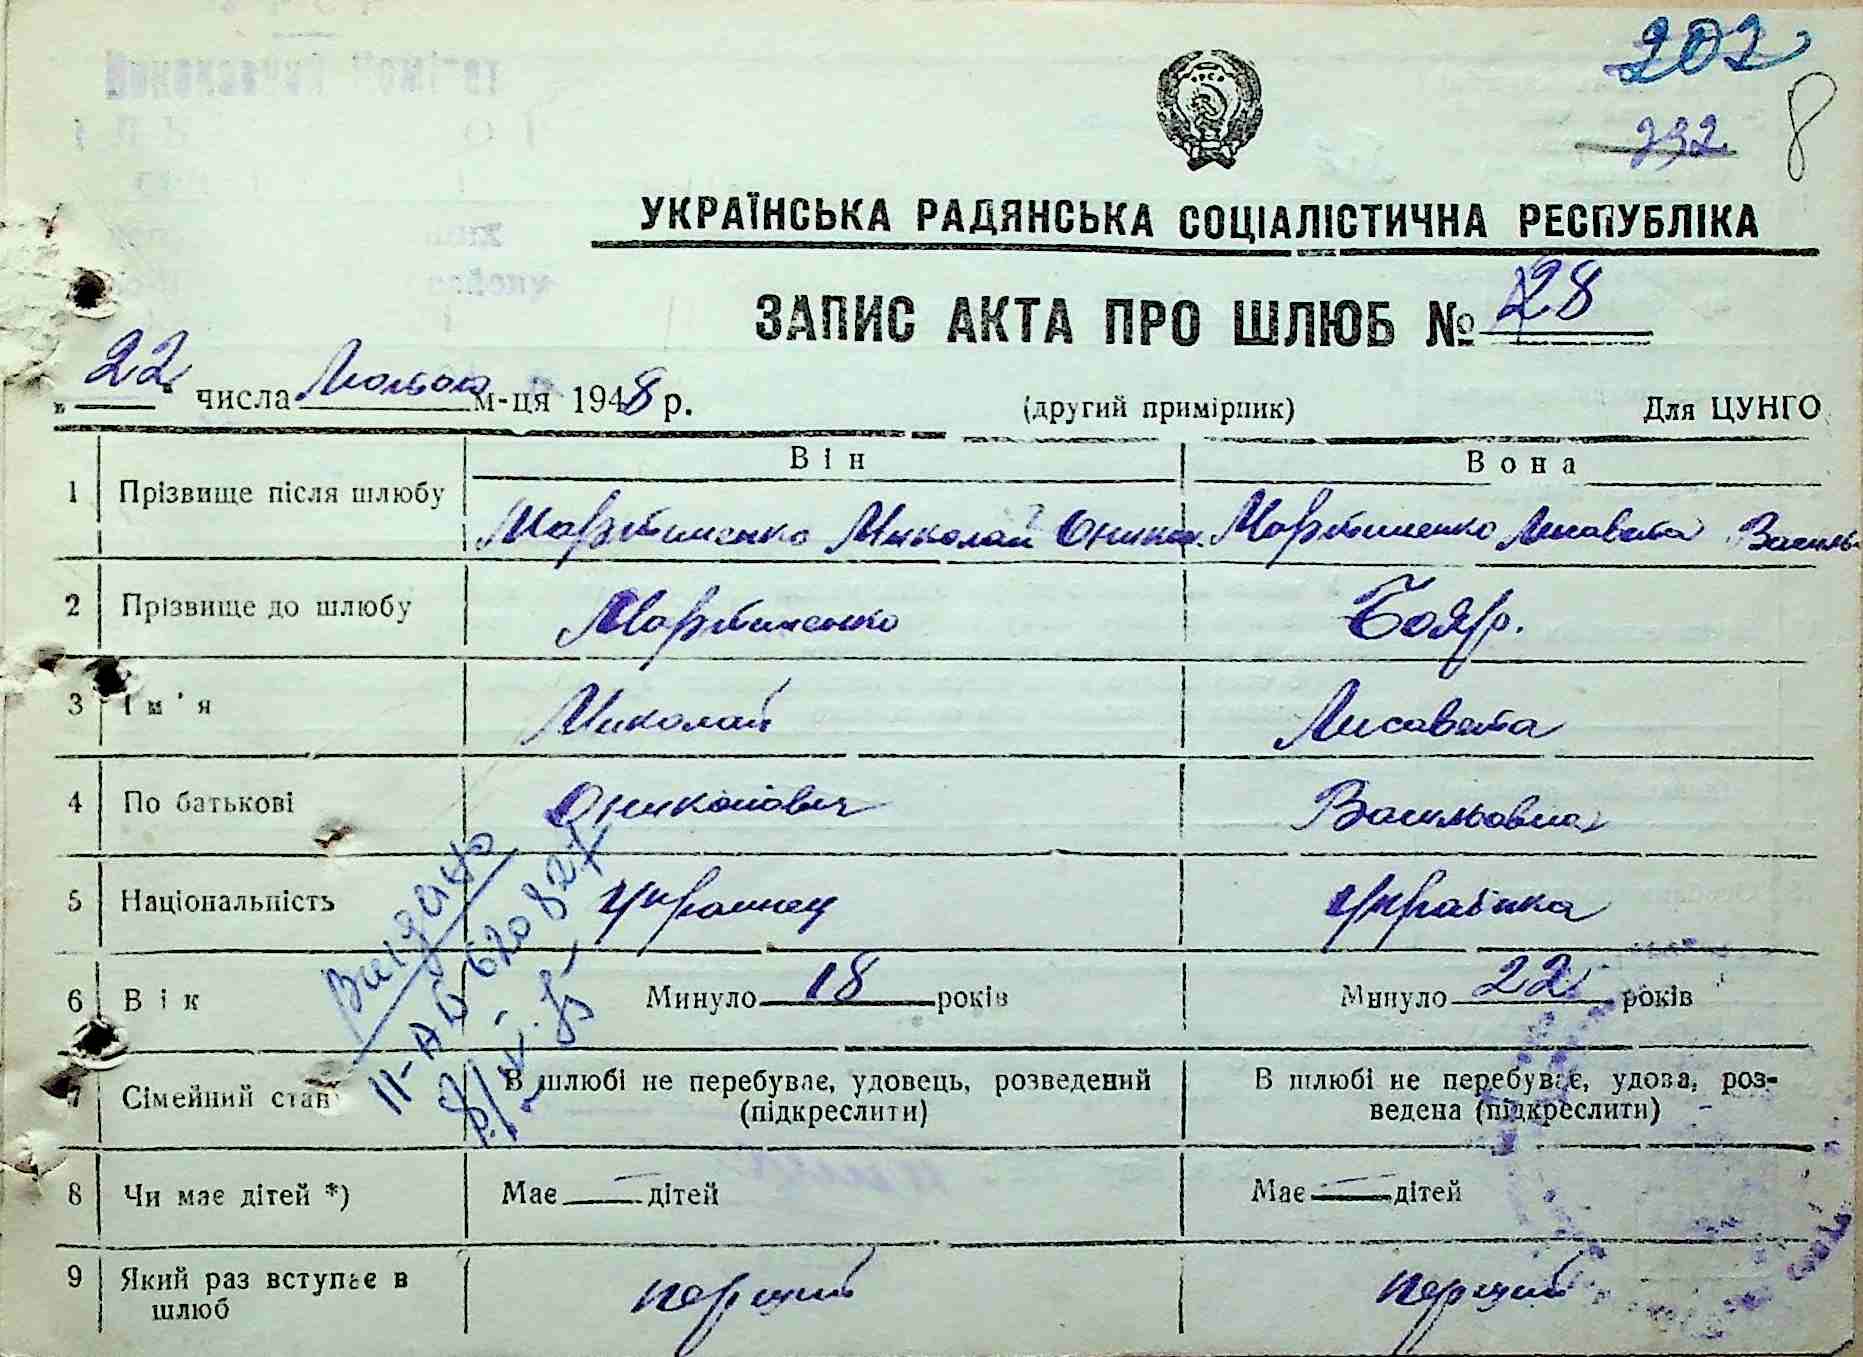 202
232
8
УКРАЇНСЬКА РАДЯНСЬКА СОЦІАЛІСТИЧНА РЕСПУБЛІКА
ЗАПИС АКТА ПРО ШЛЮБ № 28
„ 22 " числа Лютого м-ця 1948 р. (другий примірник) Для ЦУНГО
Він Вона
1 Прізвище після шлюбу Мартиненко Миколай Мартиненко Лисавета Василь
2 Прізвище до шлюбу Мартиненко Бояр.
3 Ім'я Миколай Лисавета
4 По батькові Ониколович Васильовна
5 Національність Украинец Украінка
6 Вік Минуло 18 років Минуло 22 років
7 Сімейний стан В шлюбі не перебуває, удовець, розведений (підкреслити) В шлюбі не перебуває, удова, роз-
ведена (підкреслити)
8 Чи має дітей *) Має — дітей Має — дітей
9 Який раз вступає в шлюб перший перший
Видано
II-АБ 620827